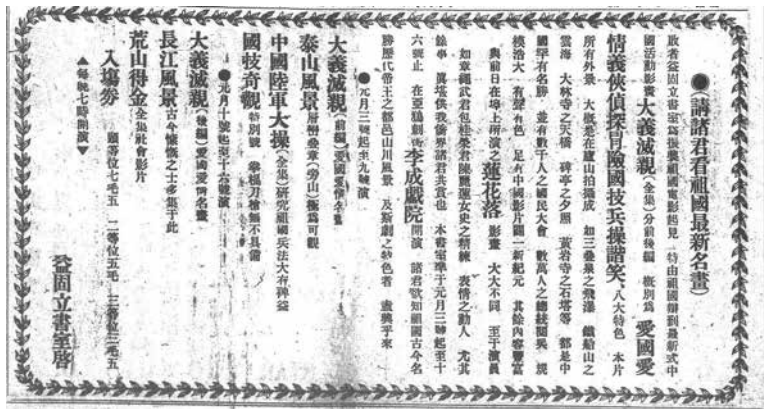 ●(請諸君看祖國最新名畫)
敬者益固立書室為振興祖國電影起見 特由祖國辦到最新式中
國活動影畫 大義滅親(全集)分前後編 概別為 愛國愛
情義俠偵探冒險國技兵操諧笑、八大特色 本片
所有外景 大概是在廬山拍攝成 如三疊泉之飛瀑 鐵船山之
雲海 大林寺之天橋 碑亭之夕照 黃岩寺之石塔等 都是中
國罕有名勝 並有數千人之國民大會 數萬人之總統閱兵 規
模浩大 有聲有色 足為中國影片闢一新紀元 其餘內容豐富
與前日在埠上所演之蓮花落影畫 大大不同 至于演員
如章繩武君包桂榮君陳麗霞女史之精練 表情之動人 尤其
餘事 質堪供我僑界諸君共賞也 本書室準于元月三號起至十
六號止 在亞鴉劇街李成戲院開演 諸君欲知祖國古今名
勝歷代帝王之都邑山川風景 及新劇之特色者 盍興乎來
●元月三號起至九號演
大義滅親(前編)愛國愛情名畫
泰山風景層巒疊章(旁山)極為可觀
中國陸軍大操(全集)研究祖國兵法大有碑益
國技奇觀特別號 拳棍刀槍無不具備
●元月十號起至十六號演
大義滅親(後編)愛國愛情名畫
長江風景古今慷慨之士多集于此
荒山得金全集社會影片
入塲券 頭等位七毛五 二等位五毛 三等位三毛五
▲每晚七時開演▼
益固立書室啓